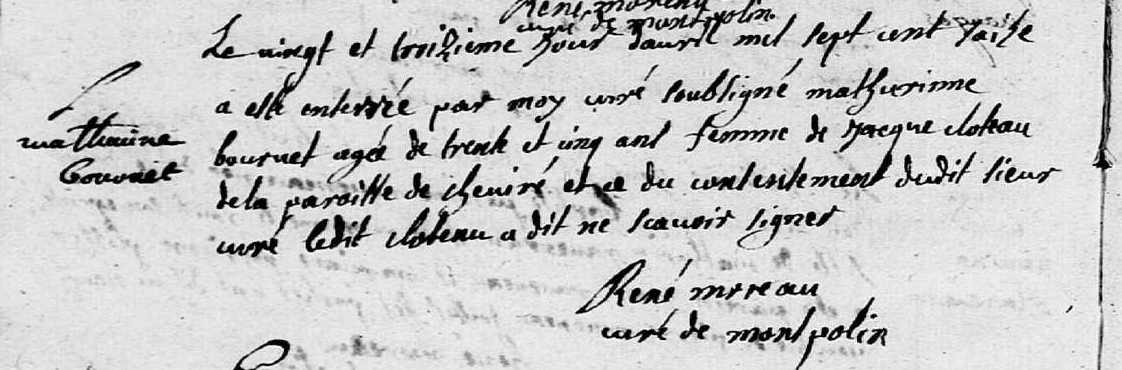 René moreau
curé de montpolin
Le vingt et troizieme jour davril mil sept cent saize
a esté enterrée par moy curé soubsigné mathurinne
mathurine
bouruet agée de trente et cinq ans femme de Jacque cloteau
de la paroisse de cheviré et ce du consentement dudit sieur
curé ledit cloteau a dit ne scavoir signer
René moreau
curé de montpolin